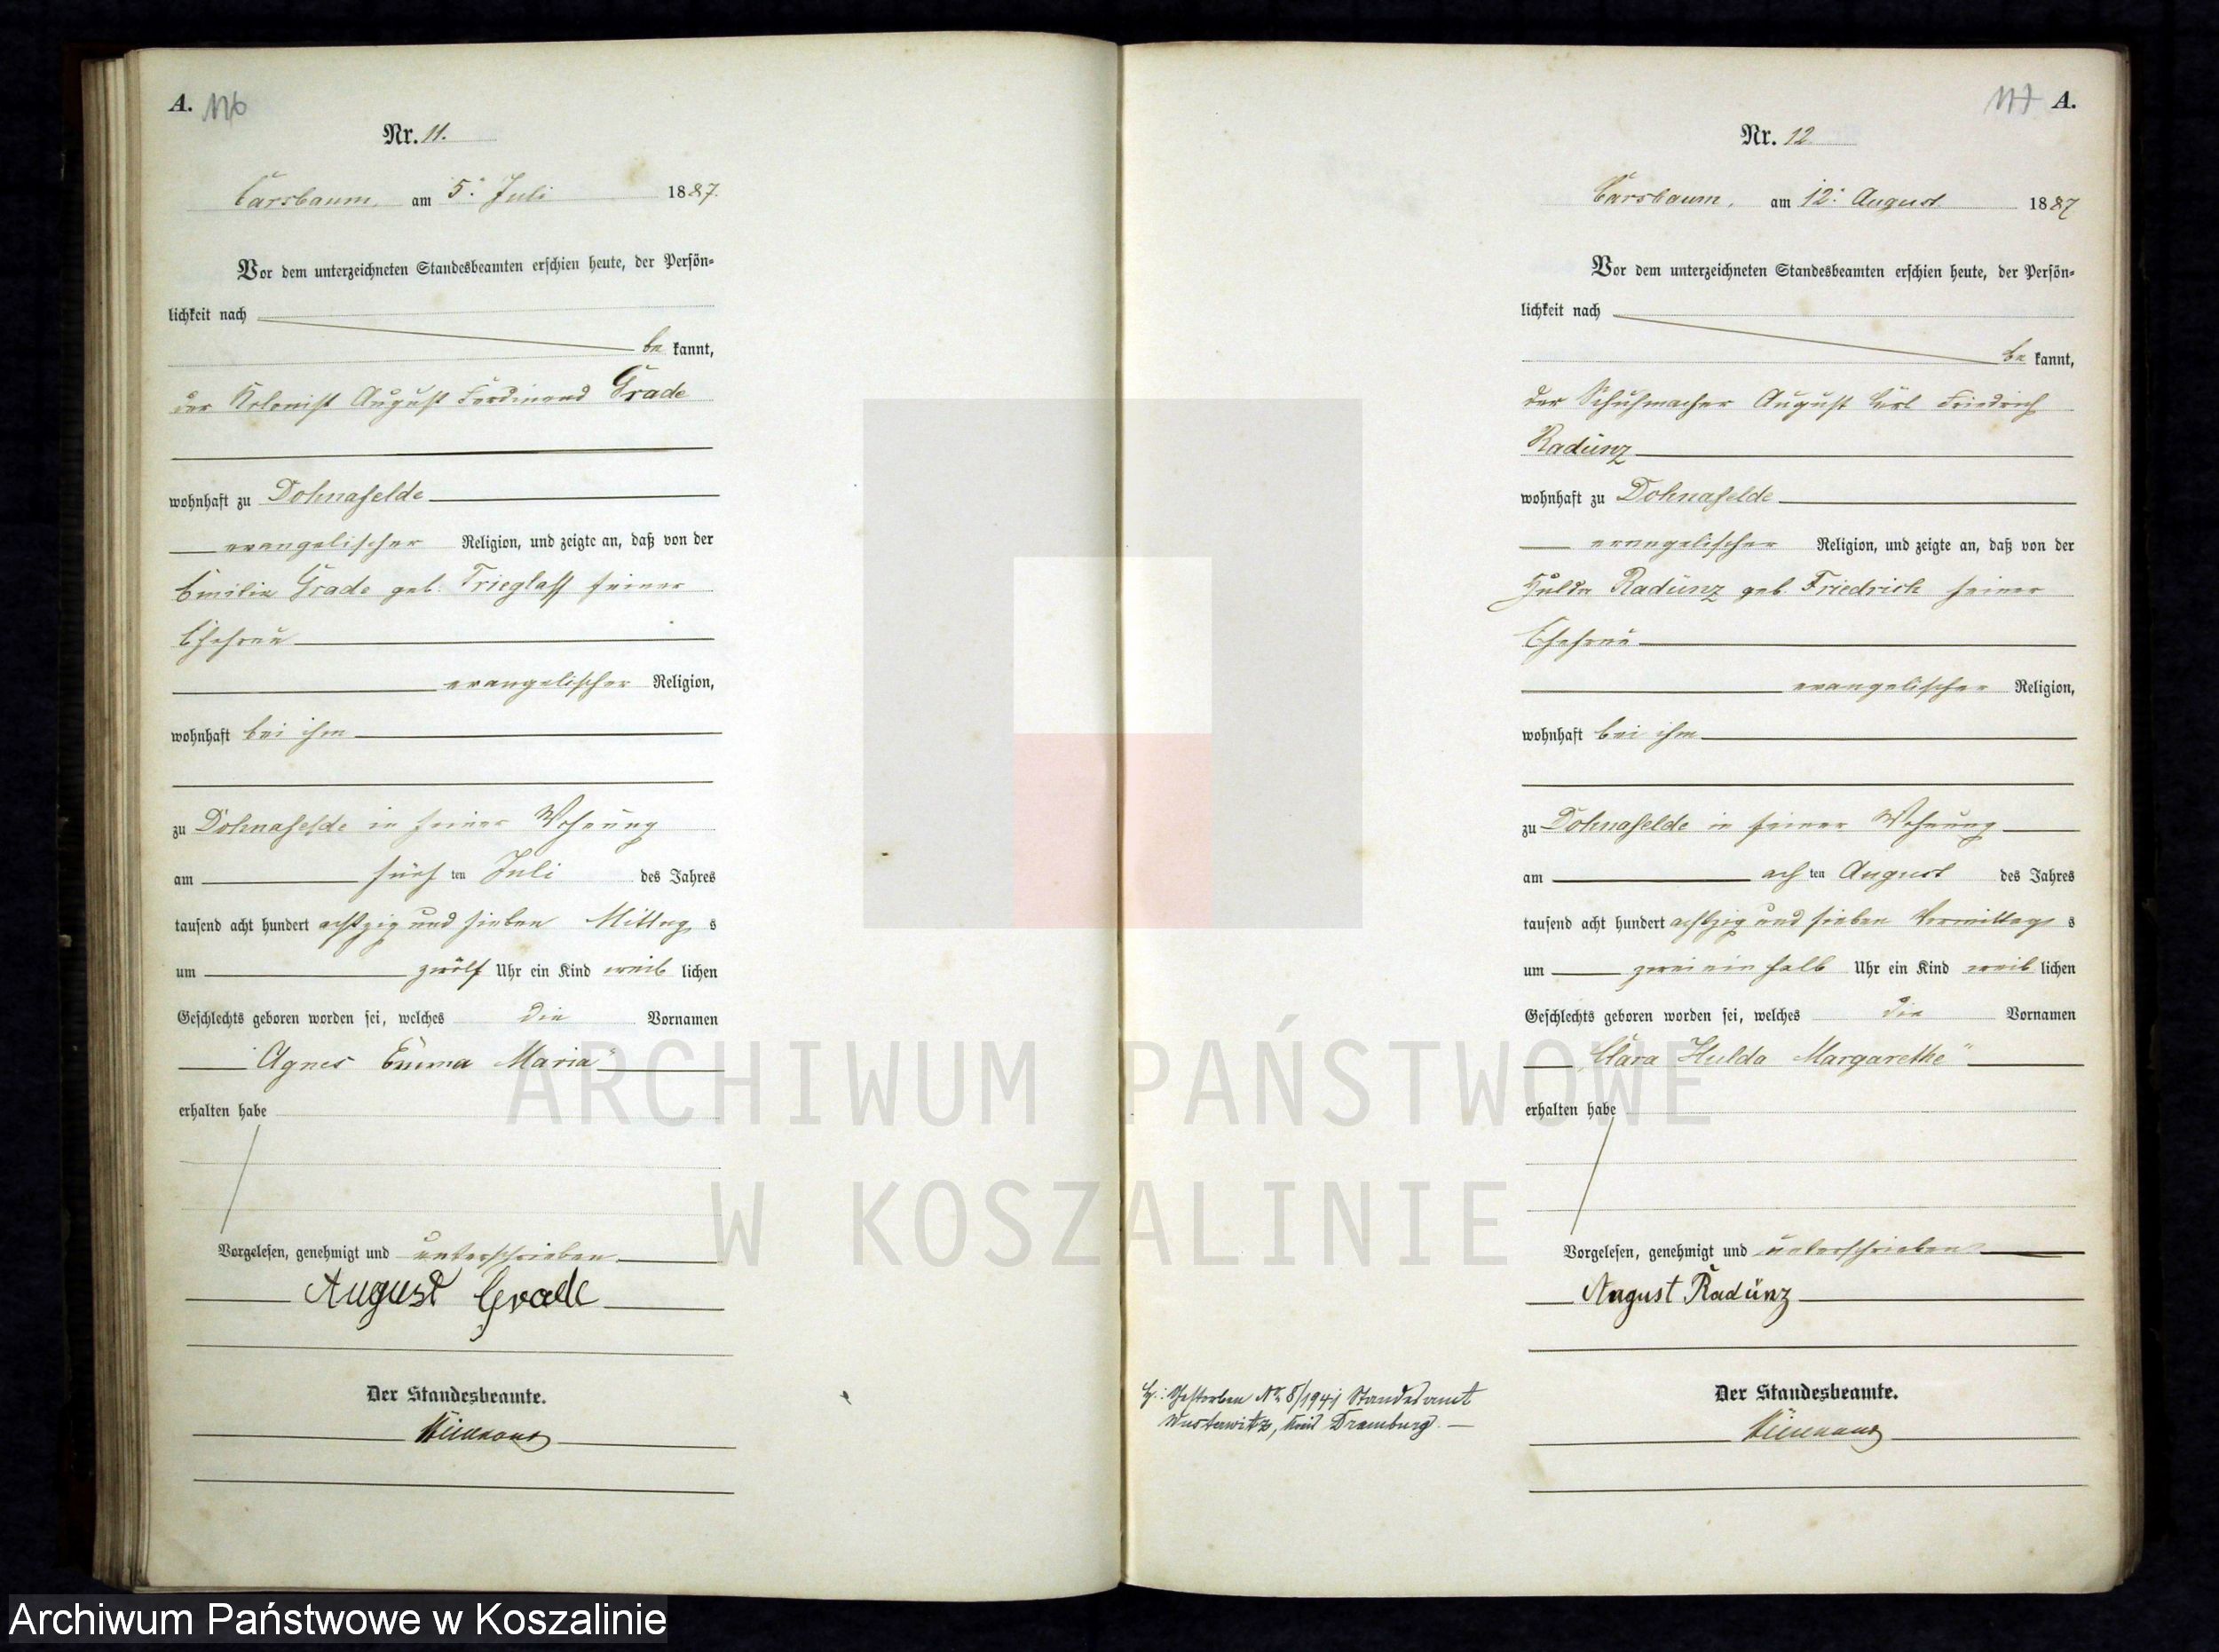 A. 116
Nr. 11.
Carsbaum, am 5. Juli 1887.
Vor dem unterzeichneten Standesbeamten erschien heute, der Persön=
lichkeit nach
be kannt,
der Kolonist August Ferdinand Grade
wohnhaft zu Dohnafelde
evangelischer Religion, und zeigte an, daß von der
Emilie Grade geb. Trieglaff seiner
Ehefrau
evangelischer Religion,
wohnhaft bei ihm
zu Dohnafelde in seiner Wohnung
am fünf ten Juli des Jahres
tausend acht hundert achtzig und sieben Mittag s
um zwölf Uhr ein Kind weib lichen
Geschlechts geboren worden sei, welches die Vornamen
"Agnes Emma Maria"
erhalten habe
Vorgelesen, genehmigt und unterschrieben
August Grade
Der Standesbeamte.
117 A.
Nr. 12
Carsbaum, am 12. August 1887
Vor dem unterzeichneten Standesbeamten erschien heute, der Persön=
lichkeit nach
be kannt,
der Schuhmacher August Carl Friedrich
Radünz
wohnhaft zu Dohnafelde
evangelischer Religion, und zeigte an, daß von der
Hulda Radünz geb. Friedrich seiner
Ehefrau
evangelischer Religion,
wohnhaft bei ihm
zu Dohnafelde in seiner Wohnung
am ach ten August des Jahres
tausend acht hundert achtzig und sieben Vormittag s
um zwei ein halb Uhr ein Kind weib lichen
Geschlechts geboren worden sei, welches die Vornamen
"Clara Hulda Margarethe"
erhalten habe
Vorgelesen, genehmigt und unterschrieben
August Radünz
Der Standesbeamte.
Gestorben Nr. 8/1941 Standesamt
Wusterwitz, Kreis Dramburg. —
ARCHIWUM PAŃSTWOWE
W KOSZALINIE
Archiwum Państwowe w Koszalinie